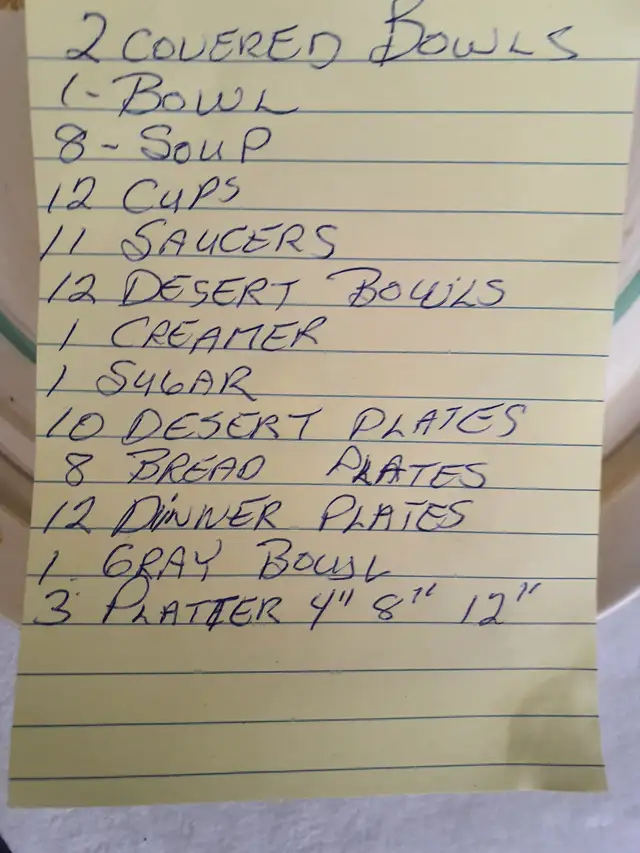 2 COVERED BOWLS
1 - BOWL
8 - SOUP
12 CUPS
11 SAUCERS
12 DESERT BOWLS
1 CREAMER
1 SUGAR
10 DESERT PLATES
8 BREAD PLATES
12 DINNER PLATES
1 GRAY BOWL
3 PLATTER 4" 8" 12"